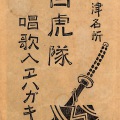 津名所
白虎隊
唱歌入ヱハガキ